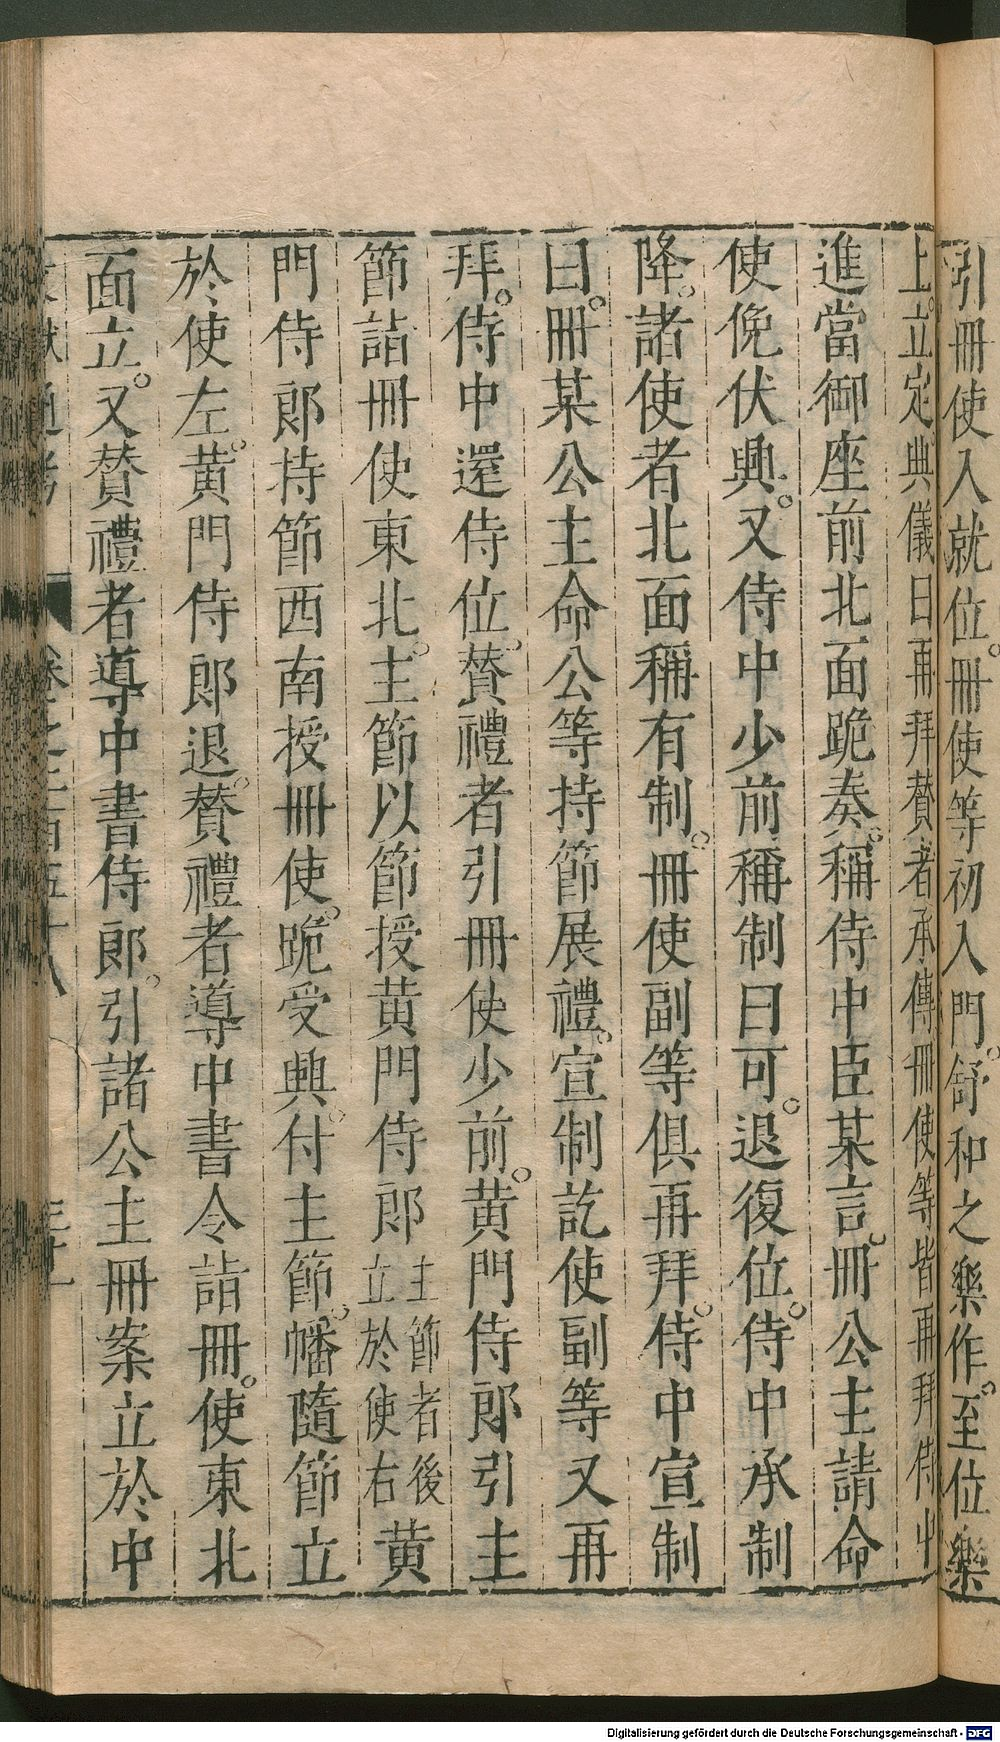 引冊使入就位。冊使等初入門。舒和之樂作。至位樂
上。立定。典儀曰再拜贊者承傳冊使等皆再拜侍中
進當御座前北面跪奏。稱侍中臣某言。冊公主請命
使俛伏興。又侍中少前稱制曰可。退復位。侍中承制
降。諸使者北面稱有制。冊使副等俱再拜。侍中宣制
曰。冊某公主命公等持節展禮。宣制訖使副等又再
拜。侍中還侍位。贊禮者引冊使少前。黃門侍郎引主
節詣冊使東北。主節以節授黃門侍郎主節者後立於使右黃
門侍郎持節西南授冊使。跪受興。付主節。幡隨節立
於使左。黃門侍郎退。贊禮者導中書令詣冊。使東北
面立。又贊禮者導中書侍郎。引諸公主冊案立於中
獻通考 卷之二百五十八
Digitalisierung gefördert durch die Deutsche Forschungsgemeinschaft - DFG